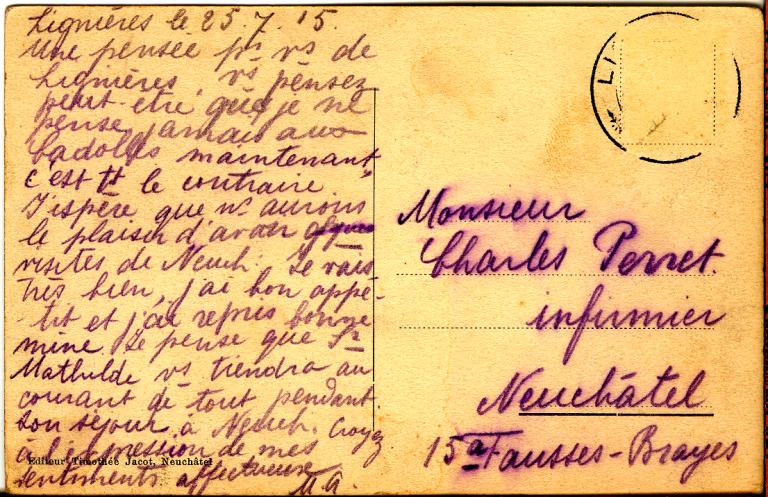 Lignières le 25.7.15.
Une pensée pr vs de
Lignières, vs pensez
peut-être que je ne
pense jamais aux
Cadolles maintenant
c'est tt le contraire.
J'espère que ns aurons
le plaisir d'avoir qques
visites de Neuch. Je vais
très bien, j'ai bon appé-
tit et j'ai repris bonne
mine. Je pense que Sr
Mathilde vs tiendra au
courant de tout pendant
son séjour à Neuch. Croyez
à l'expression de mes
sentiments affectueux
M. A.
Editeur Timothée Jacot, Neuchâtel
LI
Monsieur
Charles Perret.
infirmier
Neuchâtel
15a Fausses-Brayes